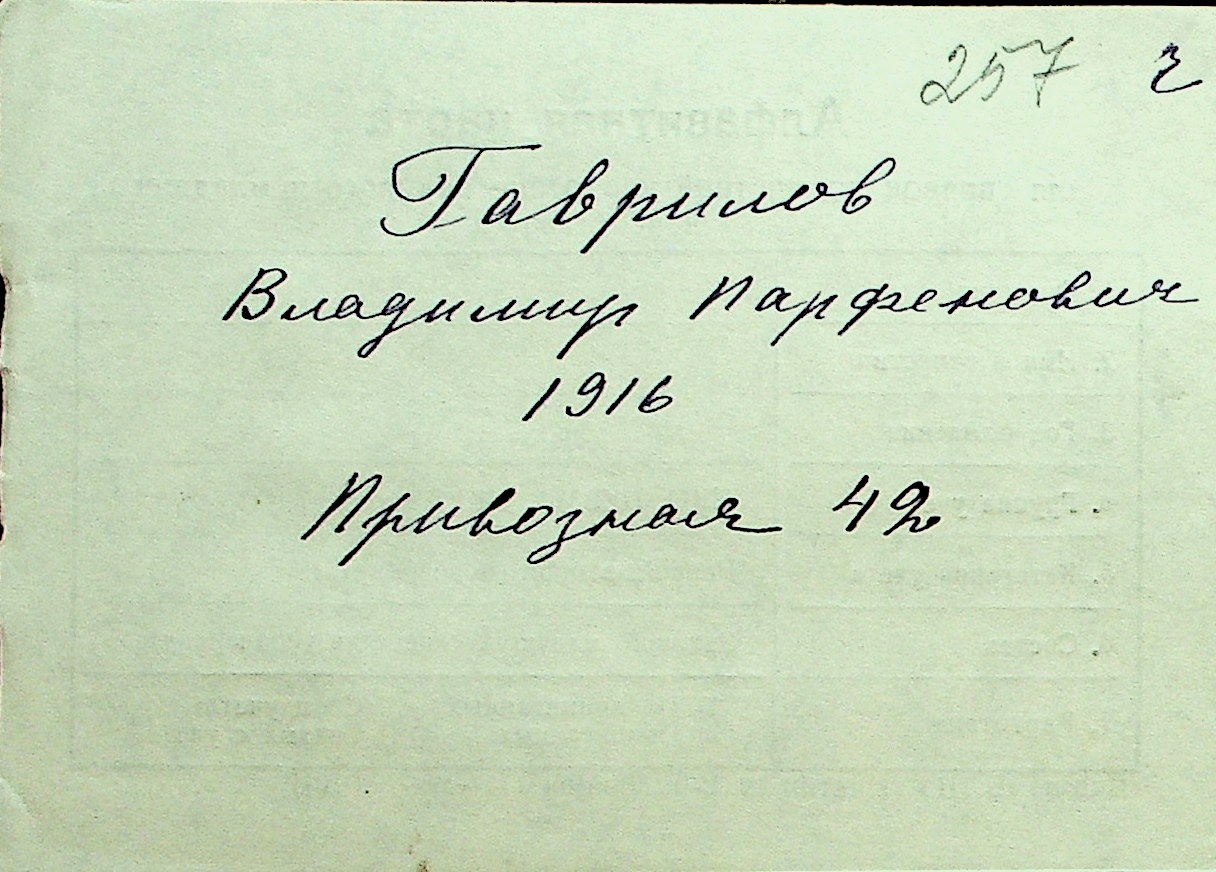 257 г
Гаврилов
Владимир Парфенович
1916
Привозная 42